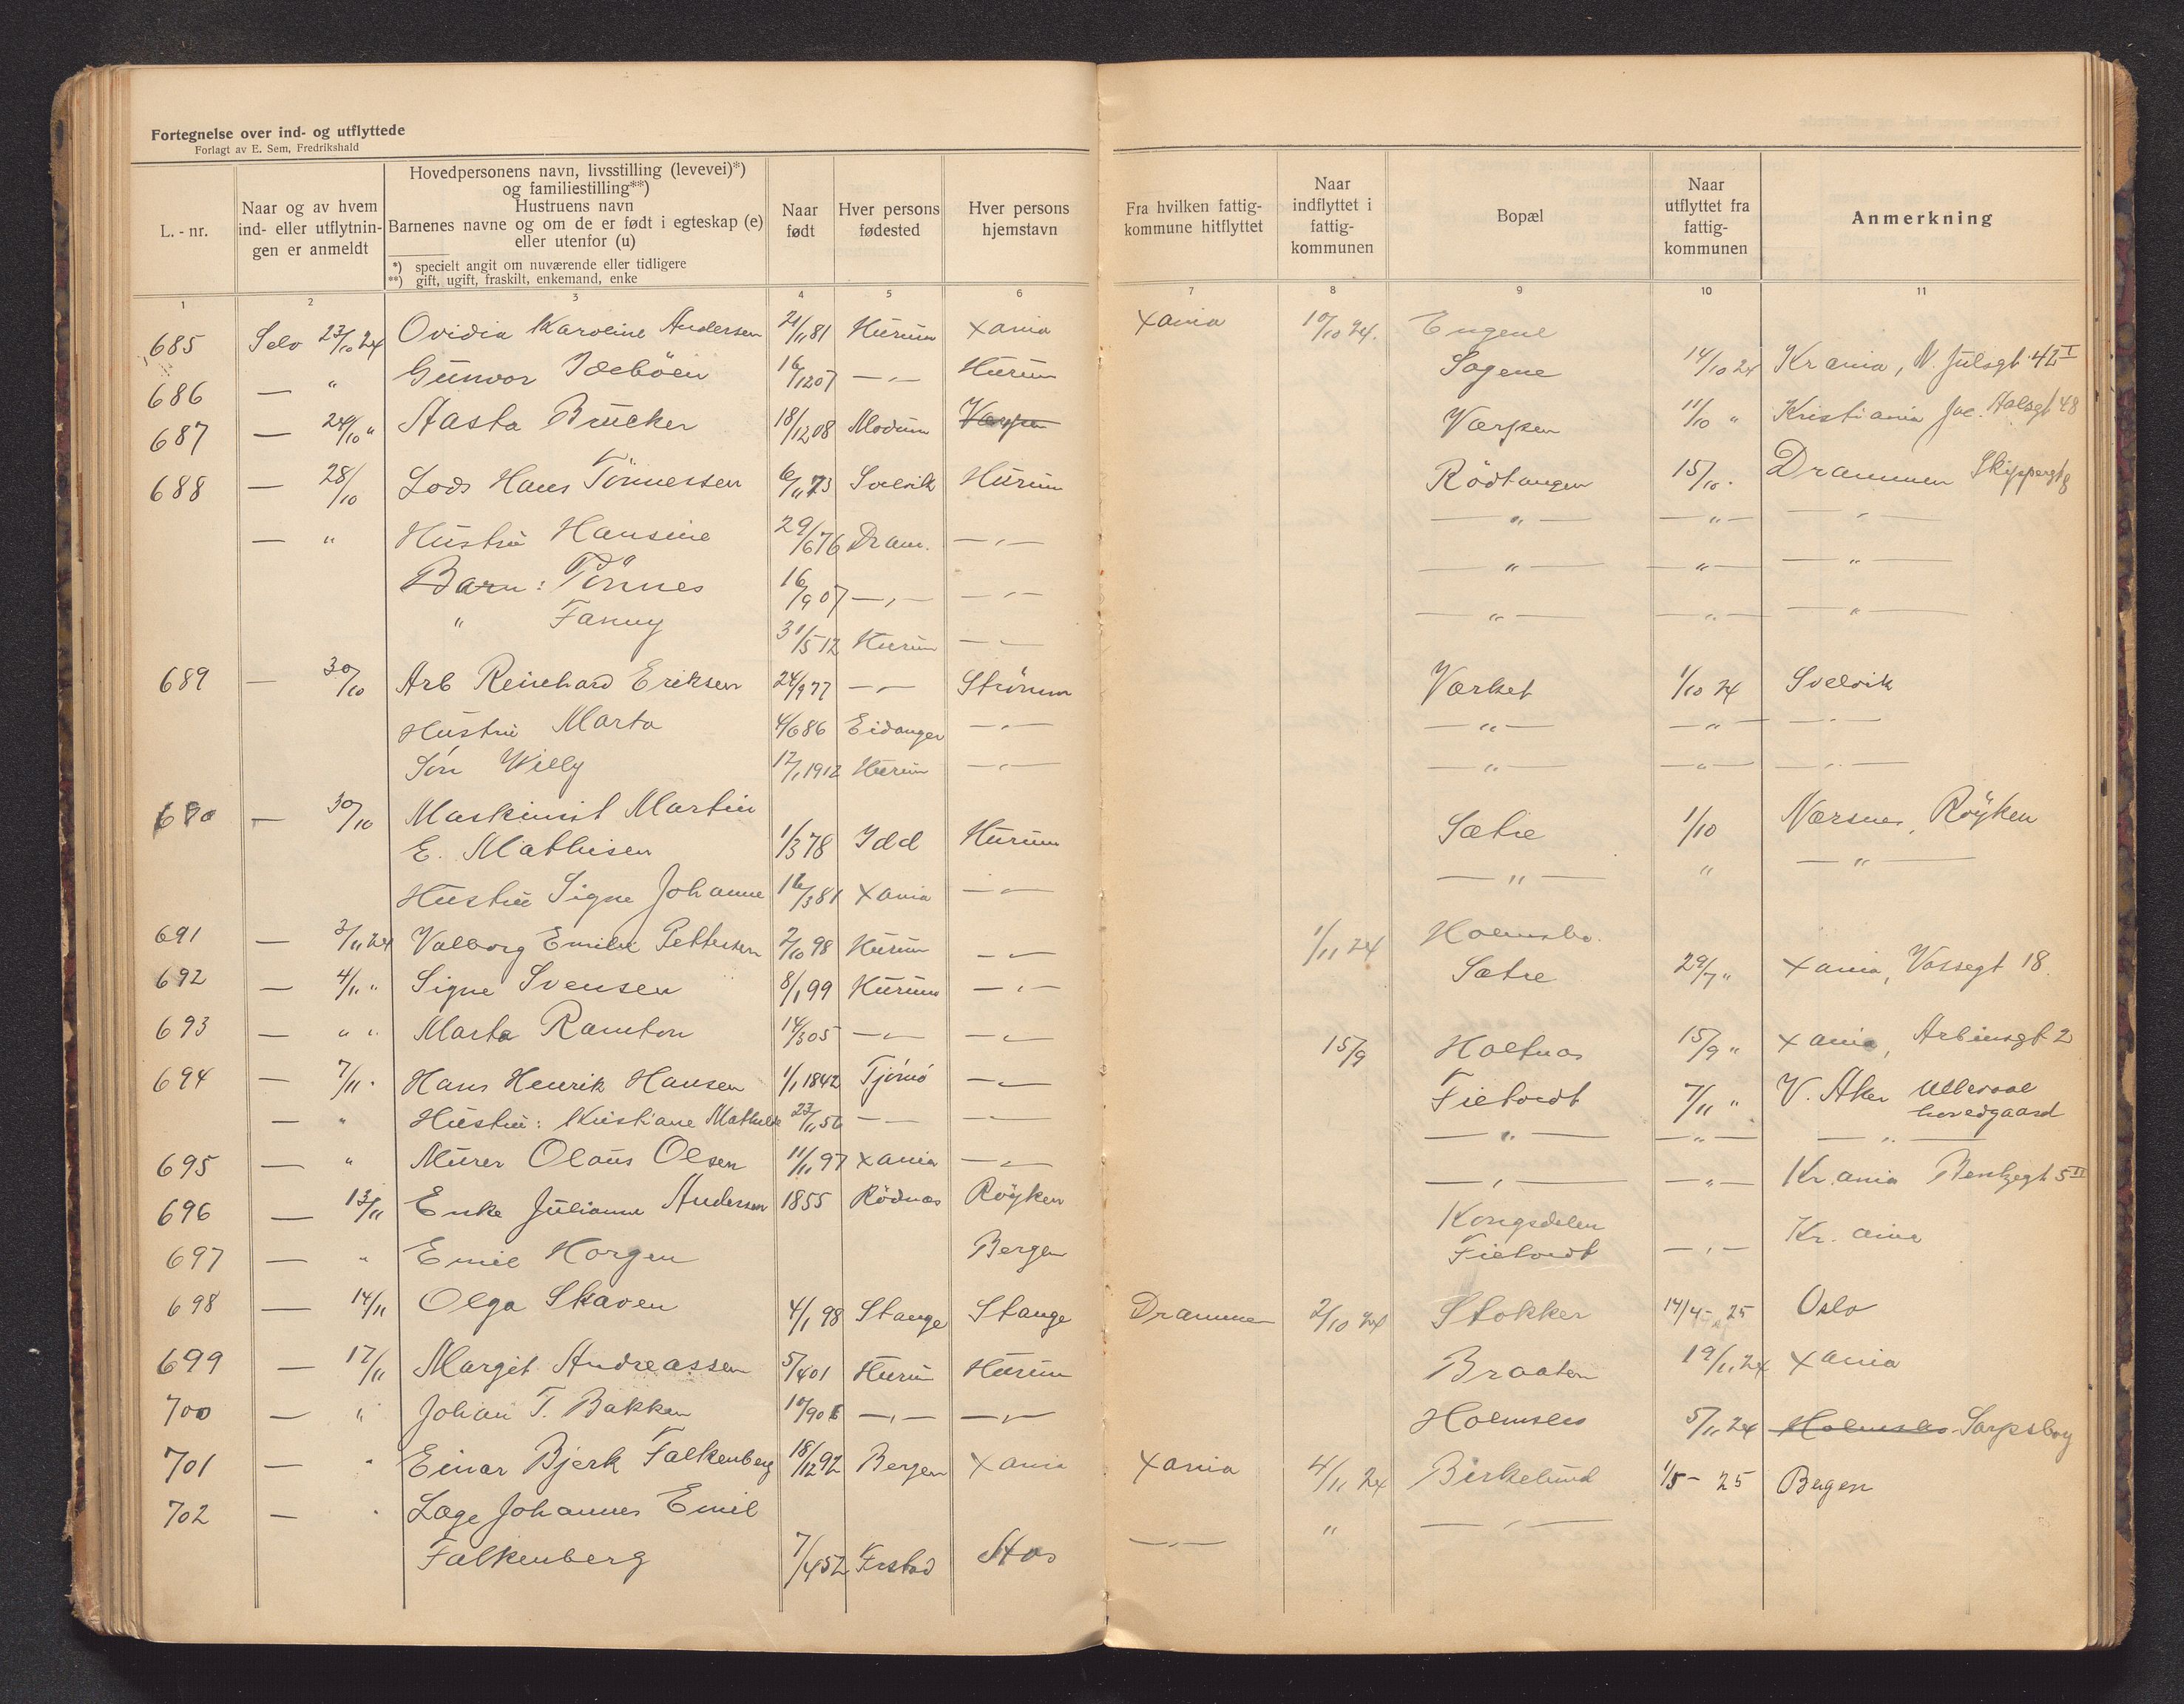 Fortegnelse over ind- og utflyttede
Forlagt av E. Sem, Fredrikshald
L.-nr.
Naar og av hvem ind- eller utflytningen er anmeldt
Hovedpersonens navn, livsstilling (levevei)*) og familiestilling**)
Hustruens navn
Barnenes navne og om de er født i egteskap (e) eller utenfor (u)
*) specielt angit om nuværende eller tidligere
**) gift, ugift, fraskilt, enkemand, enke
Naar født
Hver persons fødested
Hver persons hjemstavn
Fra hvilken fattigkommune hitflyttet
Naar indflyttet i fattigkommunen
Bopæl
Naar utflyttet fra fattigkommunen
Anmerkning
1 2 3 4 5 6 7 8 9 10 11
685 Selv 23/10 24 Ovidia Karoline Andersen 21/11 81 Hurum Xania Xania 10/10 24. Engene
686 — " Gunvor 16/12 07 —"— Hurum Sagene 14/10 24 Krania, N. Julsgt 42 I
687 — 24/10 " Aasta Brucker 18/12 08 Modum Værpen Værpen 11/10 " Kristiania Jac. Aalsgt 48
688 — 28/10 Lods Hans Tönnessen 6/11 73 Svelvik Hurum Rödtangen 15/10. Drammen Skippergt 8
— " Hustru Hansine 29/6 76 Dram. —"— —"— —"— —"—
Barn: Tönnes 16/9 07 —"— —"— —"— —"— —"—
" Fanny 31/5 12 Hurum —"— —"— —"— —"—
689 — 30/10 Arb Reinhard Eriksen 24/9 77 —"— Strömm Værket 1/10 24 Svelvik
Hustru Marta 4/6 86 Eidanger —"— —"— —"— —"—
Sön Willy 12/1 1912 Hurum —"— —"— —"— —"—
690 — 30/10 Maskinist Martin
E. Mathisen 1/3 78 Idd Hurum Sætre 1/10 Nærsnes, Röyken
Hustru Signe Johanne 16/3 81 Xania —"— —"— " —"—
691 — 3/11 24 Valborg Emilie Pettersen 2/10 98 Hurum —"— 1/11 24 Holmsbo.
692 — 4/11 " Signe Svensen 8/1 99 Hurum —"— Sætre 29/7 " Xania, Vossegt 18.
693 — " " Marta Ramton 14/3 05 —"— —"— 15/9 Holtnæs 15/9 " Xania, Arbinsgt 2
694 — 7/11 " Hans Henrik Hansen 1/1 1842 Tjömö —"— Filtvedt 7/11 " V. Aker Ullevaal hovedgaard
— " Hustru: Kristiane Mathilde 23/11 56 —"— —"— —"— —"— —"—
695 — " Murer Olaus Olsen 11/11 97 Xania —"— —"— —"— Kr.ania 5 II
696 — 13/11 Enke Julianne Andersen 1855 Rödnæs Röyken Kongsdelen
697 — " Emil Horgen Bergen Filtvedt —"— Kr. ania
698 — 14/11 Olga Skaven 4/1 98 Stange Stange Drammen 2/10 24 Stokker 14/4- 25 Oslo
699 — 17/11 Margit Andreassen 5/4 01 Hurum Hurum Braaten 19/11 24 Xania
700 — " Johan T. Bakken —"— —"— Holmsbo 5/11 24 Holmsbo Sarpsborg
701 — " Einar Bjerk Falkenberg 18/12 92 Bergen Xania Xania 4/11 24 Birkelund 1/5- 25 Bergen
702 — " Læge Johannes Emil " —"—
Falkenberg 7/4 52 Frstad —"—